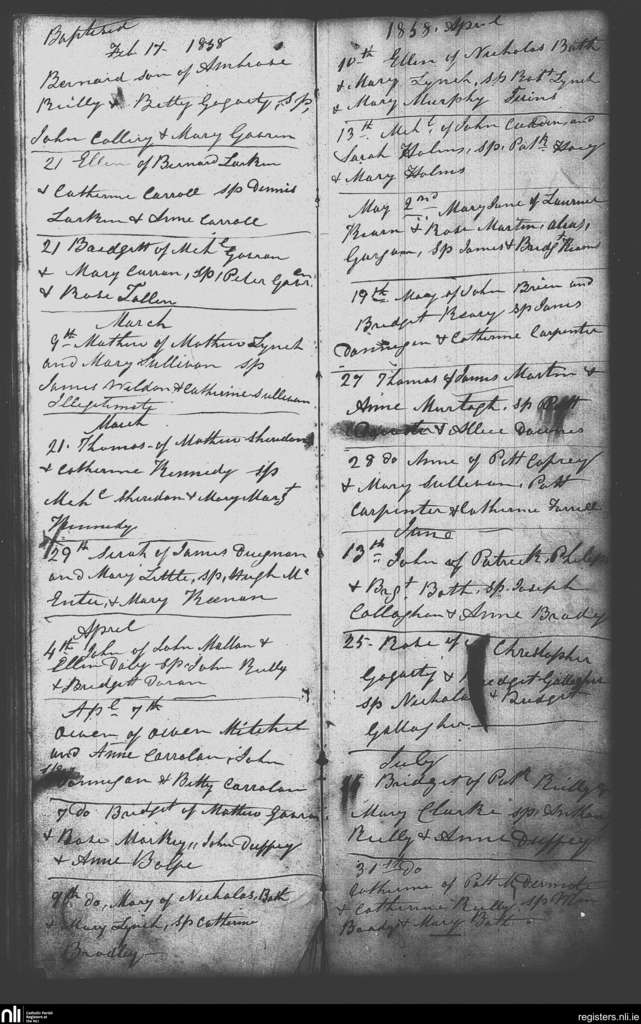 Baptised
Feb 17 1838
Bernard son of Ambrose
Reilly & Betty Gogarty, sp,
John Collery & Mary Gooren
21 Ellen of Bernard Larken
& Catherine Carroll sp Dennis
Larken & Anne Carroll
21 Baidgett of Mchl Gooran
& Mary Curran, sp, Peter
& Rose Tallen
March
9th Mathew of Mathew Lynch
and Mary Sullivan sp
James Weldon & Catherine Sullivan
Illegitimate
March
21. Thomas of Mathew Sheridan
& Catherine Kennedy sp
Mchl Sheridan & Mary Margt
Kennedy
29th Sarah of James Duignan
and Mary Little, sp, Hugh Mc
Enter, & Mary Keenan
April
4th John of John Mallon &
Ellen Daly sp John Reilly
& Bridgett Doran
Apl 7th
Owen of Owen Mitchel
and Anne Carrolan, John
& Betty Carrolan
7 do Bridget of Mathew
& Rose Markey,, John Duffey
& Anne Bolpe
9th do, Mary of Nicholas Bath
& Mary Lynch, sp Catherine
Bradley
1838. April
10th Ellen of Nicholas Bath
& Mary Lynch, sp Robt Lynch
& Mary Murphy Twins
13th Mchl of John and
Sarah Holms, sp, Patk Hoey
& Mary Holms
May 2nd Mary Jane of Laurence
Kearn & Rose Martin, alias,
Gargan, sp James & Bridgt
19th Mary of John Brien and
Bridget Keary sp James
Dannegan & Catherine Carpenter
27 Thomas of James Martin &
Anne Murtagh, sp Patt
& Allice Downes
28 do Anne of Patt Coprey
& Mary Sullivan, Patt
Carpenter & Catherine Farrell
June
13th John of Patrick
& Brgt Bath, sp. Joseph
Callaghan & Anne Brady
25- Rose of Christopher
Gogarty & Bridget Gallagher
sp Nicholas & Bridget
Gallagher
July
Bridget of Patk Reilly &
Mary Clarke sp
Reilly & Anne Duffey
31th do
Catherine of Patt McDermott
& Catherine Reilly, sp
Brady & Mary Bath
nli Catholic Parish
Registers at
the NLI
registers.nli.ie